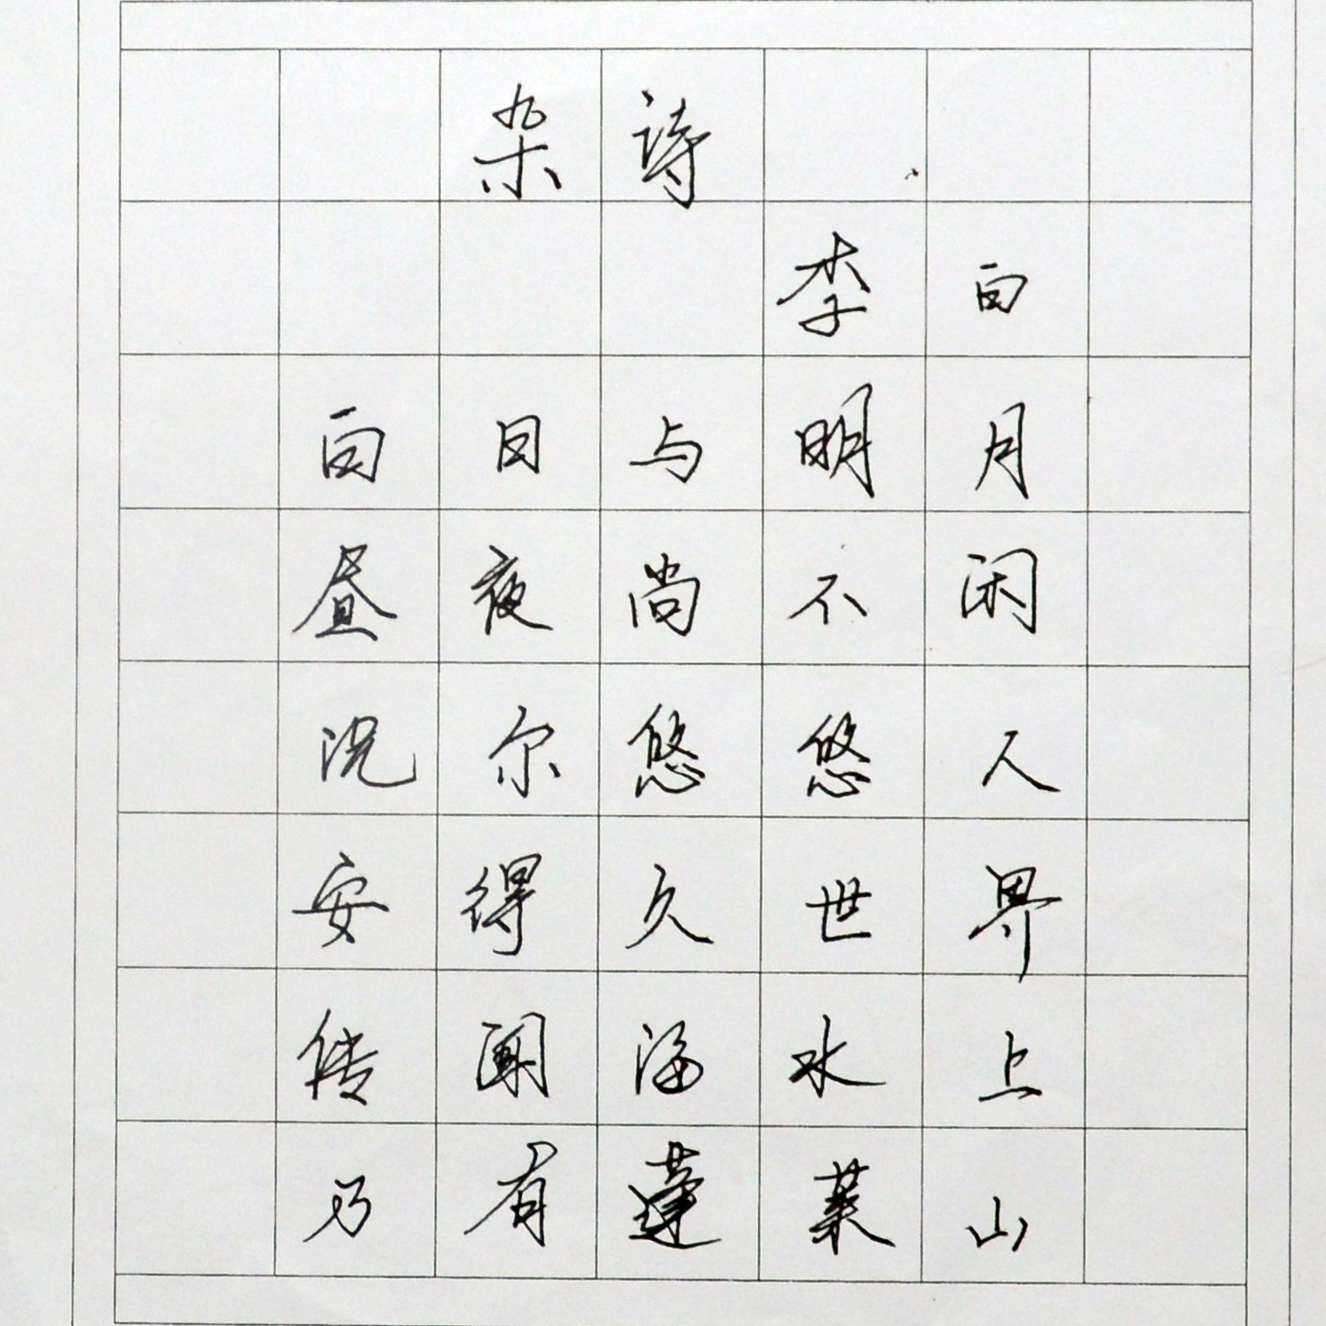 杂诗
李白
白日与明月
昼夜尚不闲
况尔悠悠人
安得久世界
传闻海水上
乃有蓬莱山